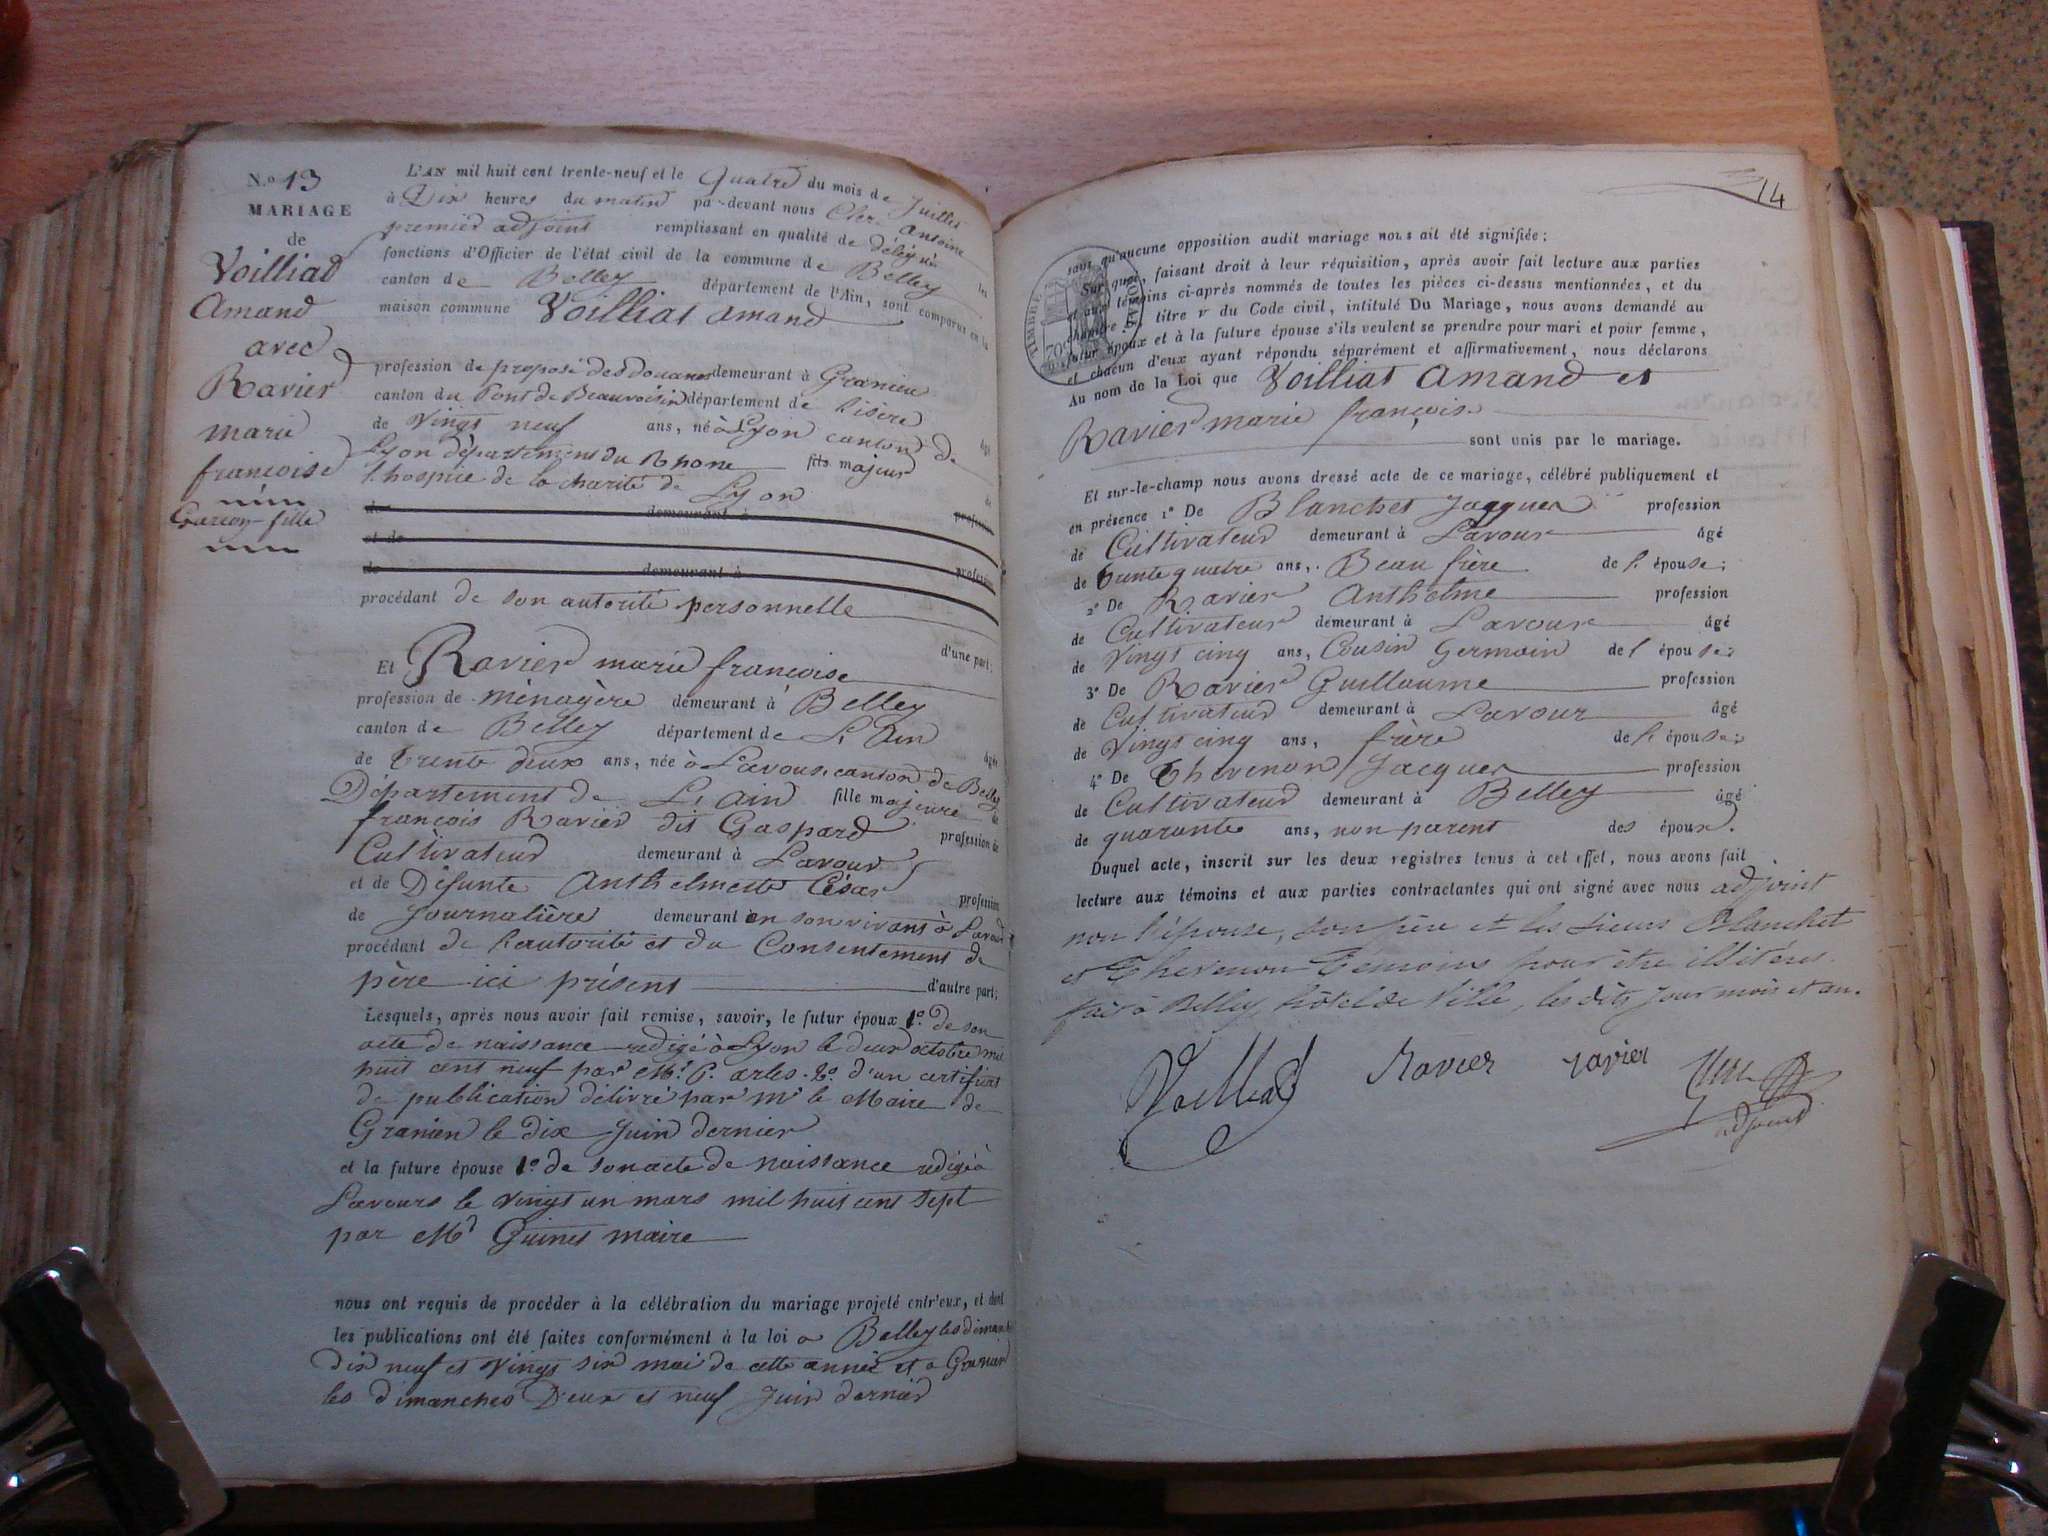 N.o 13
MARIAGE
de
Voilliat
Amand
avec
Ravier
marie
françoise
Garçon - fille
L'AN mil huit cent trente-neuf et le Quatre du mois de Juillet
à Dix heures du matin par-devant nous Antoine
premier adjoint remplissant en qualité de délégué les
fonctions d'Officier de l'état civil de la commune de Belley
canton de Belley département de l'Ain, sont comparus en la
maison commune Voilliat Amand
profession de préposé des douanes demeurant à Granieu
canton du Pont de Beauvoisin département de l'isère âgé
de Vingt neuf ans, né à Lyon canton de
Lyon département du Rhone fils majeur de
l'hospice de la charité de Lyon
de demeurant à profession
et de
de demeurant à profession
procédant de son autorité personnelle
d'une part;
Et Ravier marie françoise
profession de ménagère demeurant à Belley
canton de Belley département de L'Ain âgée
de trente deux ans, née à Lavour canton de Belley
Département de L'Ain fille majeure de
françois Ravier dit Gaspard profession de
Cultivateur demeurant à Lavour
et de Défunte Anthelmette César profession
de Journalière demeurant en son vivant à Lavour
procédant de l'autorité et du Consentement de
père ici présent d'autre part;
Lesquels, après nous avoir fait remise, savoir, le futur époux 1.o de son
acte de naissance redigé à Lyon le deux octobre mil
huit cent neuf par Mr. P. arles. 2.o d'un certificat
de publication délivré par Mr le Maire de
Granieu le dix Juin dernier
et la future épouse 1.o de son acte de naissance redigé à
Lavours le vingt un mars mil huit cent sept
par Mr Guinet maire
nous ont requis de procéder à la célébration du mariage projeté entr'eux, et dont
les publications ont été faites conformément à la loi a Belley les dimanches
dix neuf et vingt six mai de cette année et a Granieu
les dimanches Deux et neuf Juin dernier
14
TIMBRE ROYAL
70c
sans qu'aucune opposition audit mariage nous ait été signifiée;
Sur quoi, faisant droit à leur réquisition, après avoir fait lecture aux parties
et aux témoins ci-après nommés de toutes les pièces ci-dessus mentionnées, et du
chapitre titre v du Code civil, intitulé Du Mariage, nous avons demandé au
futur époux et à la future épouse s'ils veulent se prendre pour mari et pour femme,
et chacun d'eux ayant répondu séparément et affirmativement, nous déclarons
Au nom de la Loi que Voilliat Amand et
Ravier marie françoise
sont unis par le mariage.
Et sur-le-champ nous avons dressé acte de ce mariage, célébré publiquement et
en présence 1o De Blanchet Jacques profession
de Cultivateur demeurant à Lavour âgé
de trente quatre ans, Beau frère de l'épouse;
2o De Ravier Anthelme profession
de Cultivateur demeurant à Lavour âgé
de Vingt cinq ans, Cousin Germain de l'épouse;
3o De Ravier Guillaume profession
de Cultivateur demeurant à Lavour âgé
de Vingt cinq ans, frère de l'épouse;
4o De Thevenon Jacques profession
de Cultivateur demeurant à Belley âgé
de quarante ans, non parent des époux.
Duquel acte, inscrit sur les deux registres tenus à cet effet, nous avons fait
lecture aux témoins et aux parties contractantes qui ont signé avec nous adjoint
non l'épouse, son père et les sieurs Blanchet
et Thevenon témoins pour être illitérés.
fait à Belley, hôtel de Ville, les dits jour mois et an.
Voilliat Ravier ravier
adjoint